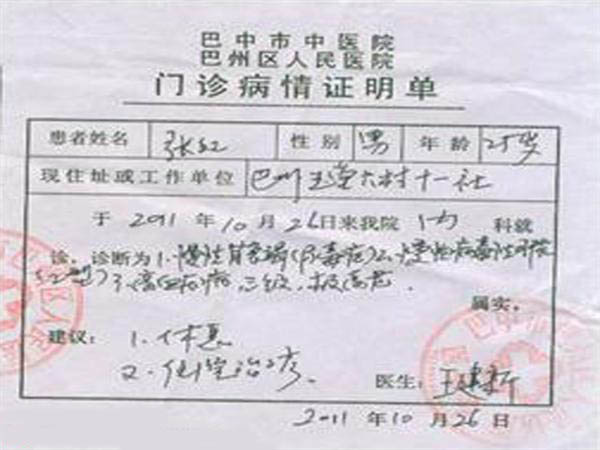 巴中市中医院
巴州区人民医院
门诊病情证明单
患者姓名 张红 性别 男 年龄 25岁
现住址或工作单位 巴州玉堂 村十一社
于 2011 年 10 月 26 日来我院 内 科就
诊。诊断为 1. 慢性 2. 慢性病毒性肝炎
3. 高血压病, 三级, 极高危.
属实。
建议: 1. 休息
2. 住院治疗.
医生: 王建新
2011 年 10 月 26 日